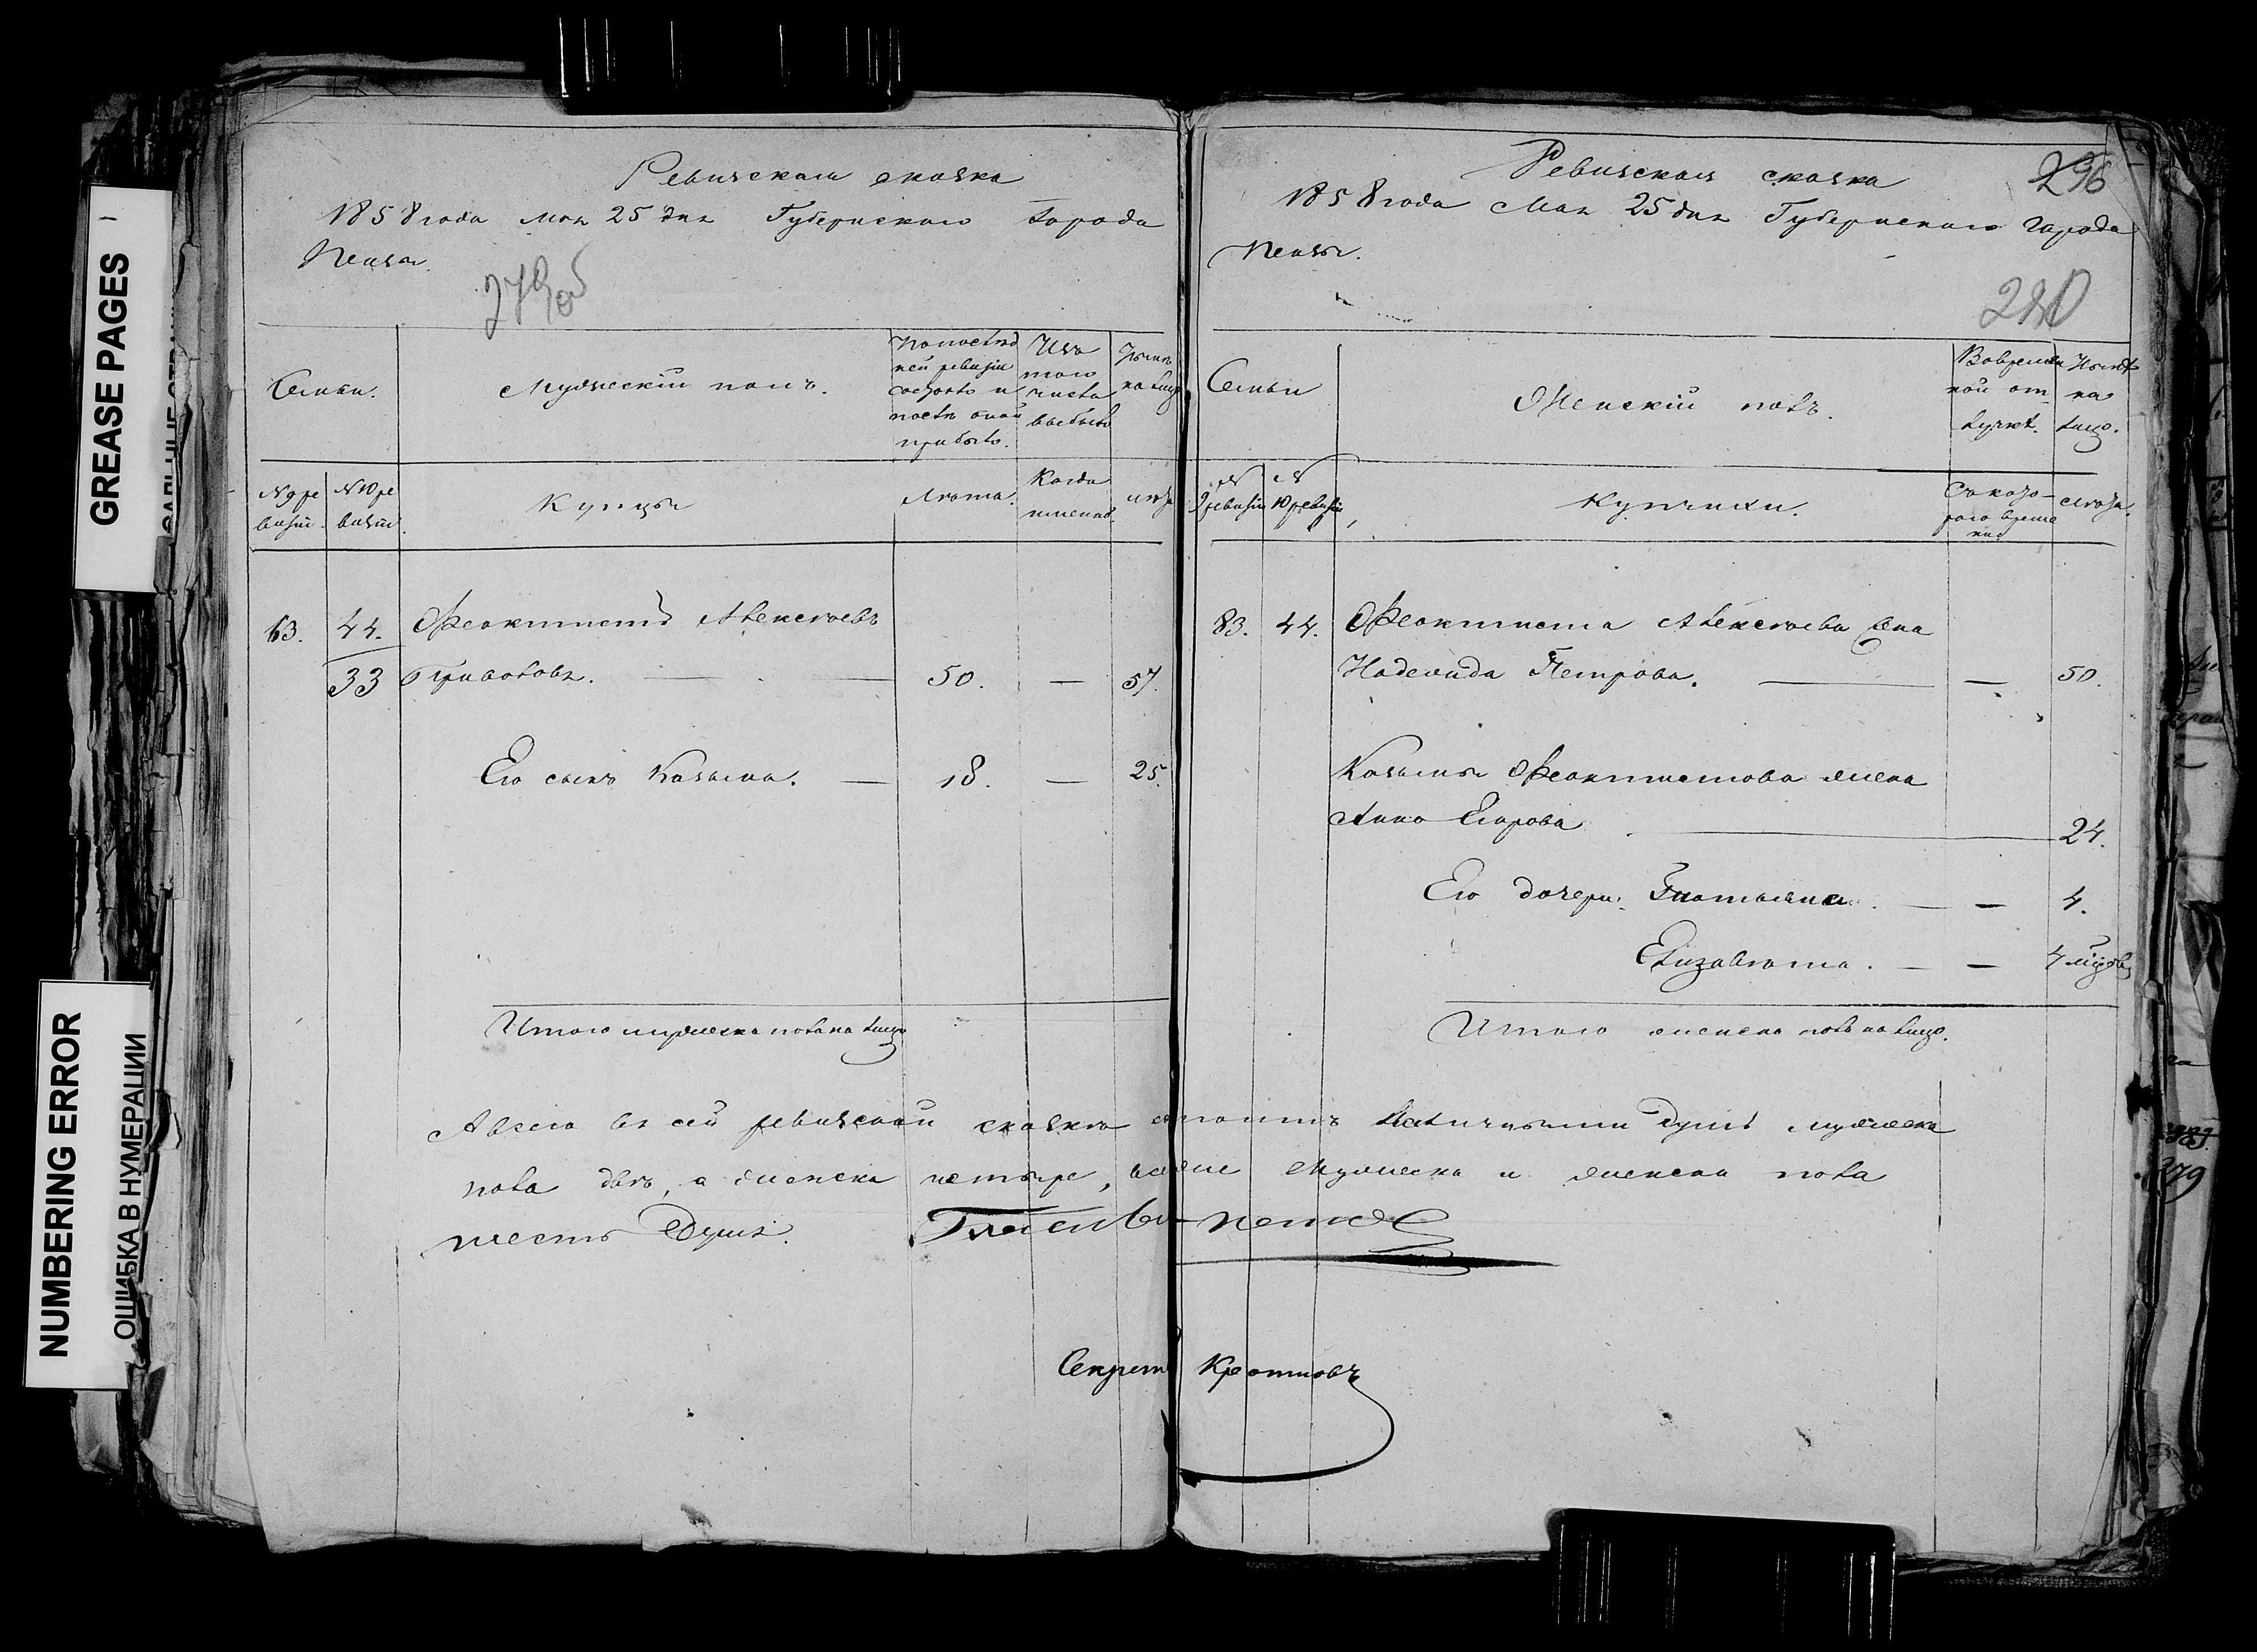 GREASE PAGES
NUMBERING ERROR
ОШИБКА В НУМЕРАЦИИ
Ревизская сказка
1858 года Мая 25 дня Губернскаго города
Пензы.
279 об
Семьи.
Мужескій полъ.
По послѣд
ней ревизіи
состояло и
послѣ оной
прибыло.
Изъ
того
числа
выбыло
Нынѣ
на лицо
№ 9 ре
визіи.
№ 10 ре
визіи.
Купцы
Лѣта.
Когда
именно.
лѣта
63. 44. Феоктистъ Алексѣевъ
33 50. — 57.
Его сынъ Козьма. — 18. — 25.
Итого мужеска пола на лицо
Ревизская сказка
296
1858 года Мая 25 дня Губернскаго города
Пензы.
280
Семьи
Женскій полъ.
Во времен
ной от
лучкѣ.
Нынѣ
на
лицо.
№
9 ревизіи
№
10 ревизіи
Купчихи.
Съ кото-
раго време
ни
лѣта.
83. 44. Феоктиста Алексѣева жена
Надежда Петрова. — — 50.
Козьмы Феоктистова жена
Анна Егорова — 24.
Его дочери: Татьяна. — — 4.
Елизавета. — — 4 мѣсяцовъ
Итого женска пола на лицо.
А всего въ сей ревизской сказкѣ состоитъ наличными душъ мужеска
пола двѣ, а женска четыре, мужеска и женска пола
шесть душъ.
Секрет Кротковъ